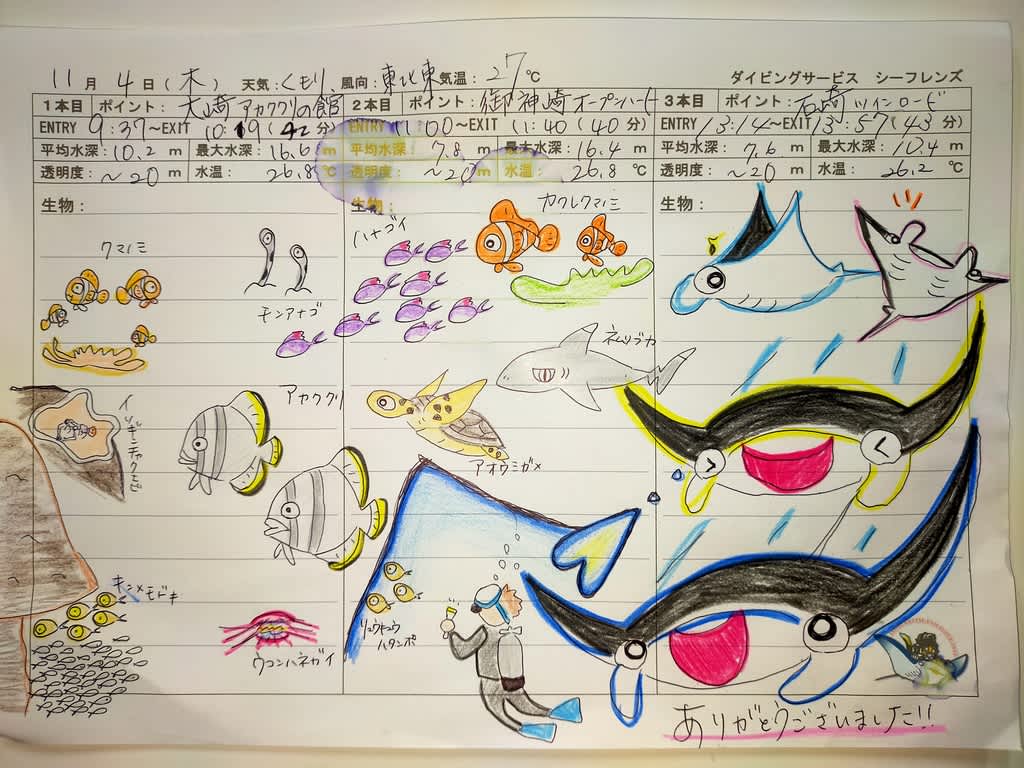 11月4日(木) 天気:くもり 風向:東北東 気温:27℃
ダイビングサービス シーフレンズ
1本目 ポイント:大崎アカククリの館
ENTRY 9:37~EXIT 10:19(42分)
平均水深:10.2m 最大水深:16.6m
透明度:~20m 水温:26.8℃
生物:
クマノミ
モンアナゴ
アカククリ
イソギンチャクエビ
キンメモドキ
ウコンハネガイ
2本目 ポイント:御神崎オープンハート
ENTRY 11:00~EXIT 11:40(40分)
平均水深:7.8m 最大水深:16.4m
透明度:~20m 水温:26.8℃
生物:
ハナゴイ
カクレクマノミ
ネムリブカ
アオウミガメ
リュウキュウ
ハタンポ
3本目 ポイント:石崎ツインロード
ENTRY 13:14~EXIT 13:57(43分)
平均水深:7.6m 最大水深:10.4m
透明度:~20m 水温:26.2℃
生物:
ありがとうございました!!